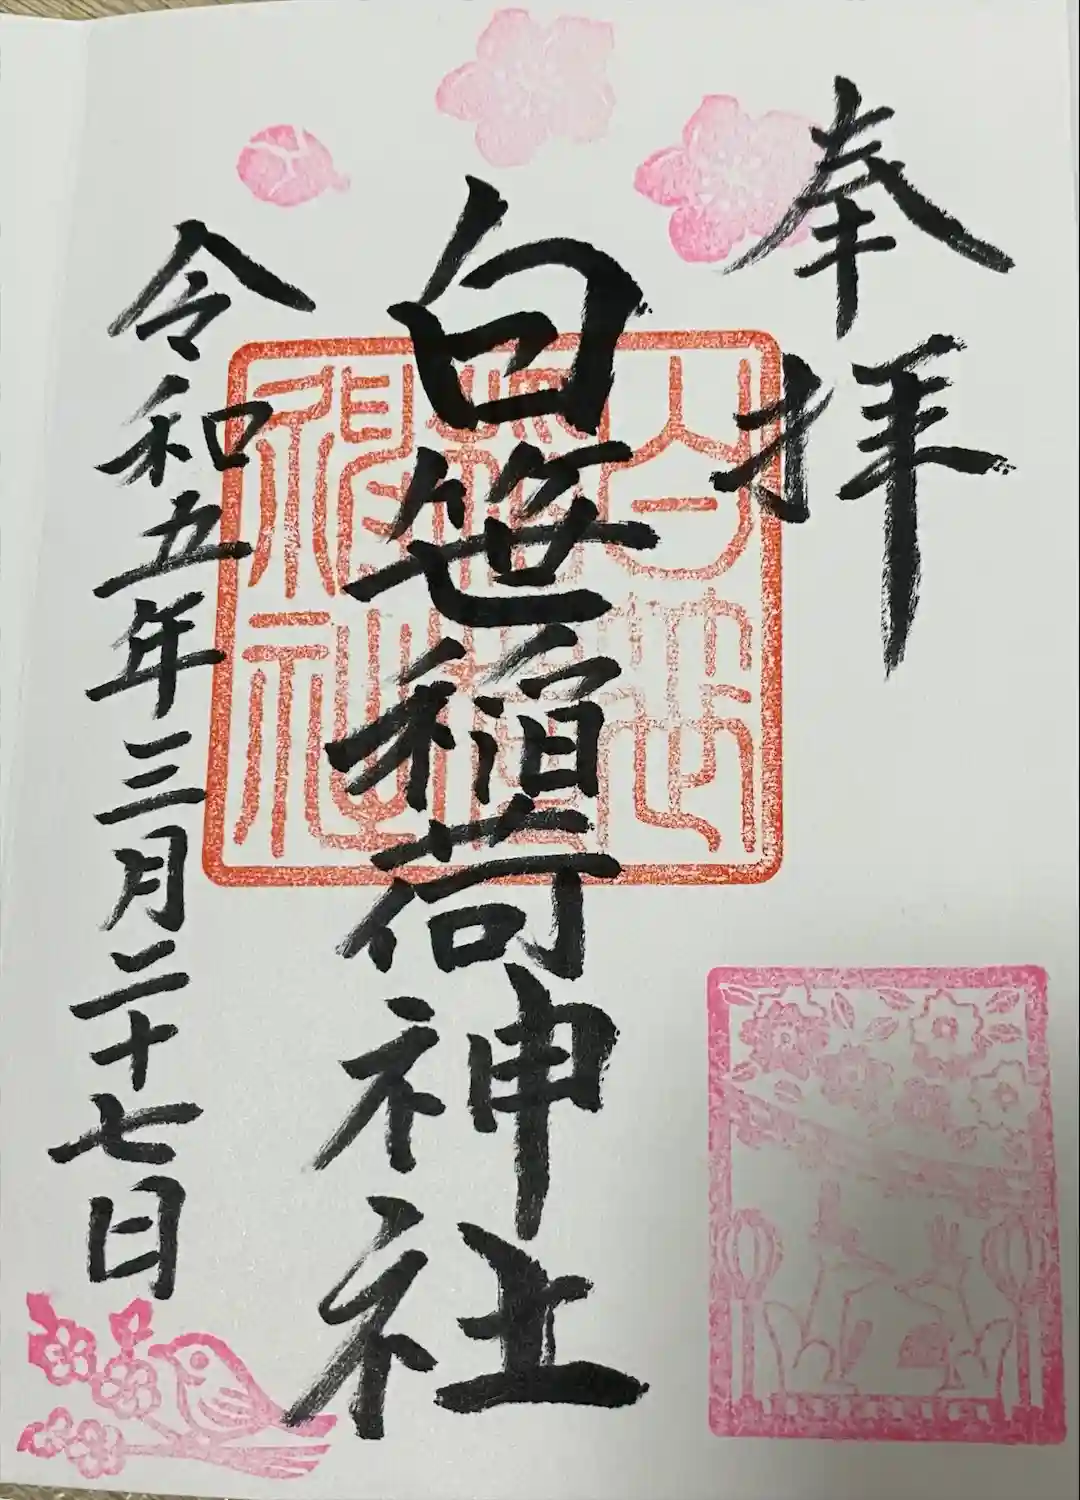 奉拝
白笹稲荷神社
令和五年三月二十七日